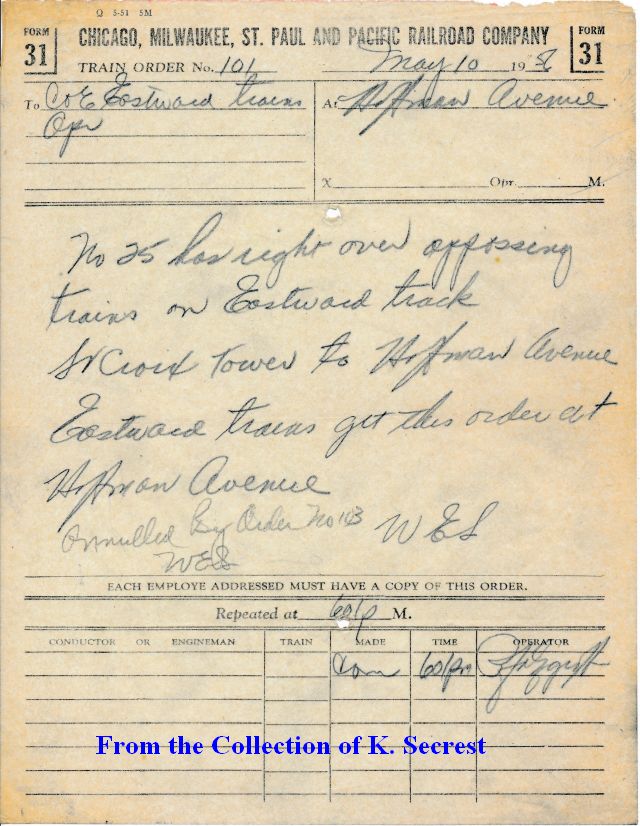 Q 5-51 5M
FORM 31
CHICAGO, MILWAUKEE, ST. PAUL AND PACIFIC RAILROAD COMPANY
FORM 31
TRAIN ORDER No. 101 May 10 19
To C&E Eastward trains
Opr
At Hoffman Avenue
X Opr. M.
No 25 has right over oppossing
trains on Eastward track
St Croix Tower to Hoffman Avenue
Eastward trains get this order at
Hoffman Avenue
WES
Annulled By Order No 103
WES
EACH EMPLOYE ADDRESSED MUST HAVE A COPY OF THIS ORDER.
Repeated at 601p M.
CONDUCTOR OR ENGINEMAN TRAIN MADE TIME OPERATOR
Com 601pm
From the Collection of K. Secrest